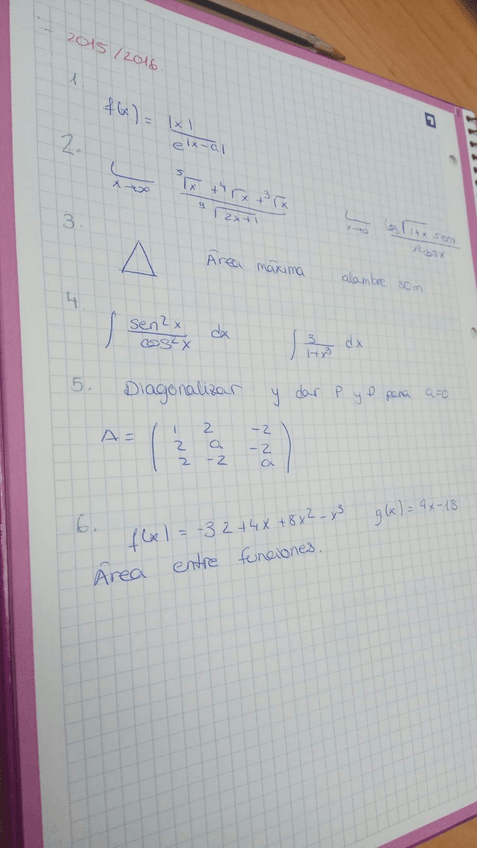 2015/2016
1 f(x) = |x| / e^|x-a|
2. L x→∞ (⁵√x + ⁴√x + ³√x) / ³√(2x+1) L x→0 log √(1+x) senx / xcosx
3. △ Área máxima alambre 30m
4. ∫ sen²x / cos²x dx ∫ 3 / (1+x³) dx
5. Diagonalizar y dar P y D para a=0
A = ( 1 2 -2
2 a -2
2 -2 a )
6. f(x) = -32 + 4x + 8x² - x³ g(x) = 9x - 18
Área entre funciones.